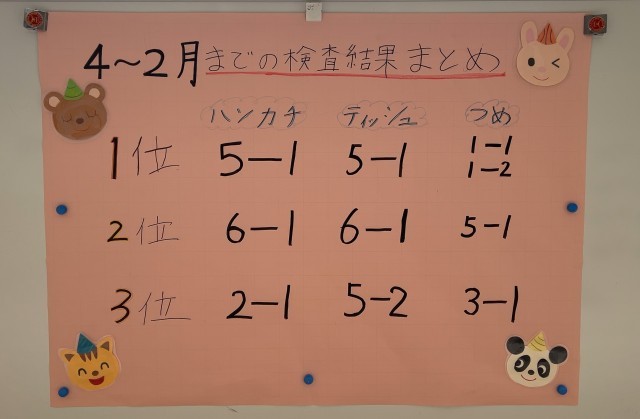 4〜2月までの検査結果まとめ
ハンカチ ティッシュ つめ
1位 5ー1 5ー1 1ー1
1ー2
2位 6ー1 6ー1 5ー1
3位 2ー1 5ー2 3ー1